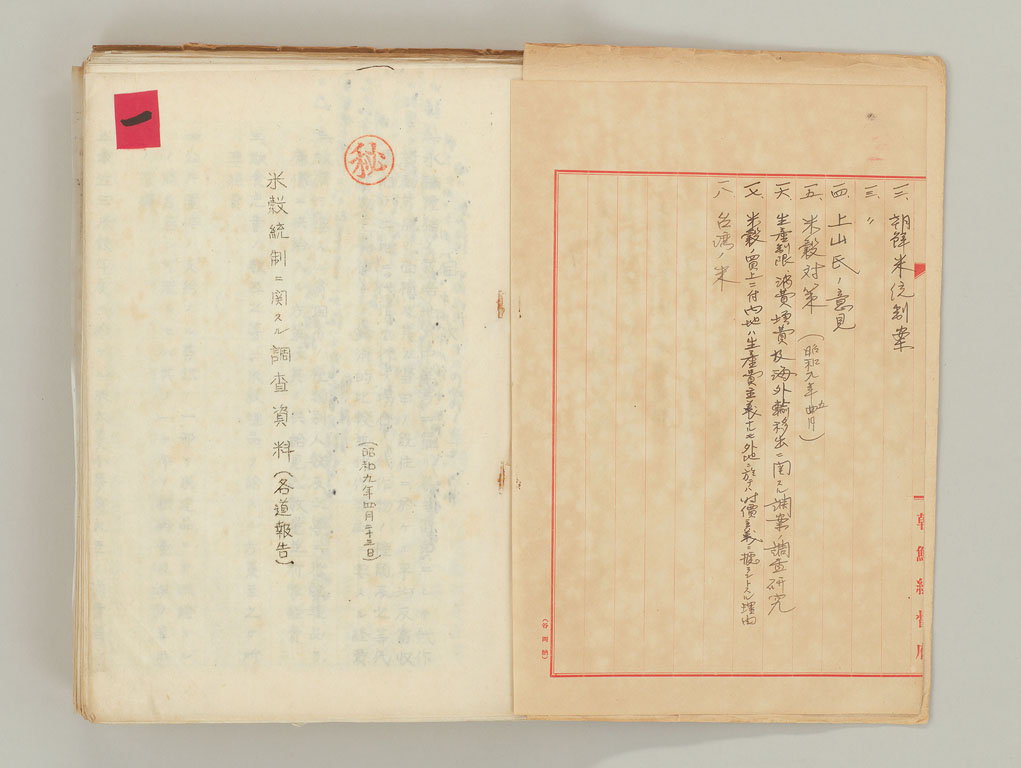 一三、朝鮮米統制案
一三、〃
一四、上山氏ノ意見
一五、米穀対策(昭和九年四五月)
一六、生産制限、消費増費及海外輸移出ニ関スル調案ノ調査研究
一七、米穀ノ買上ニ付内地ハ生産費主義ナルモ外地ニ於テハ時價主義ニ據ラントスル理由
一八、台湾ノ米
朝鮮総督府
秘
(昭和九年四月二十三日)
米穀統制ニ関スル調査資料(各道報告)
一